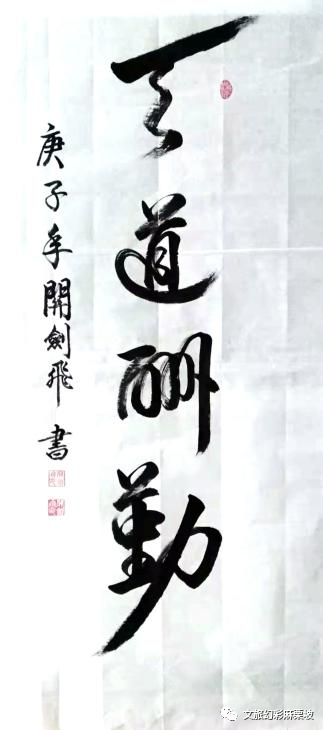 天道酬勤
庚子年開劍飛書
文旅幻彩麻栗坡